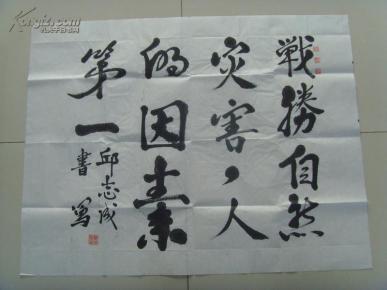 戰勝自然
灾害，人
的因素
第一
邱志成
書写
Kongfz.com
孔夫子旧书网